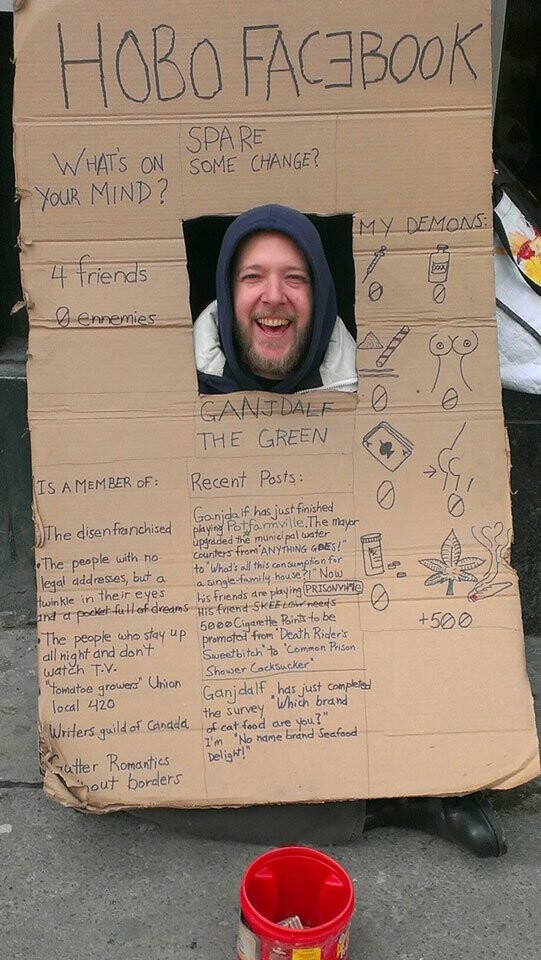 HOBO FACEBOOK
WHAT'S ON
YOUR MIND?
SPARE
SOME CHANGE?
4 friends
0 ennemies
MY DEMONS:
0
0
0
0
0
0
0
+500
GANJDALF
THE GREEN
IS A MEMBER OF:
•The disenfranchised
•The people with no
legal addresses, but a
twinkle in their eyes
and a pocket full of dreams
•The people who stay up
all night and don't
watch T.V.
•"tomatoe growers" Union
local 420
•Writers guild of Canada
Gutter Romantics
out borders
Recent Posts:
Ganjdalf has just finished
playing Potfarmville. The mayor
upgraded the municipal water
counters from "ANYTHING GOES!"
to "What's all this consumption for
a single-family house?!" Now
his friends are playing PRISONVILLE
His friend SKEELOW needs
5000 Cigarette Points to be
promoted from "Death Rider's
Sweetbitch" to "Common Prison
Shower Cocksucker"
Ganjdalf has just completed
the survey "Which brand
of cat food are you?"
I'm "No name brand Seafood
Delight!"